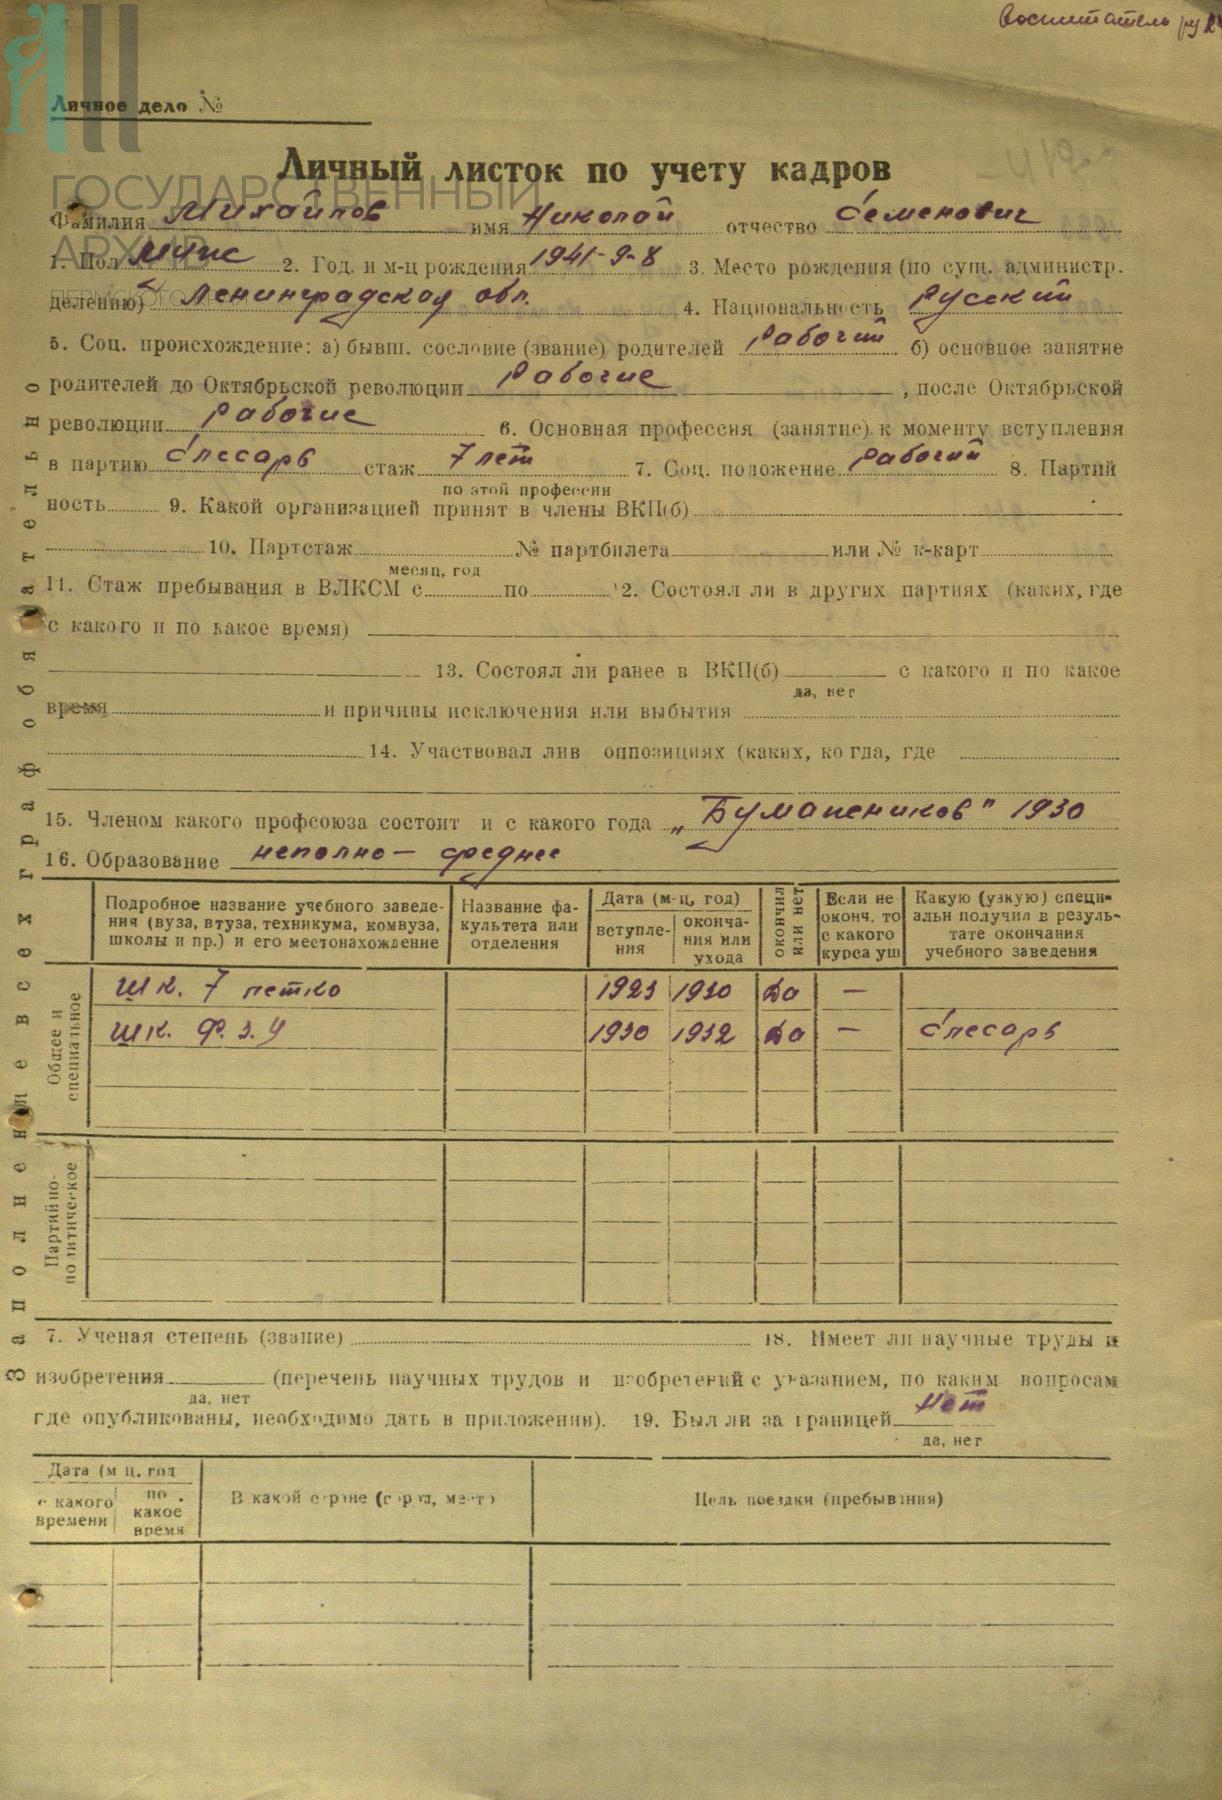 Воспитатель ру
Личное дело №
Личный листок по учету кадров
ГОСУДАРСТВЕННЫЙ
АРХИВ
ПЕРМСКОГО КРАЯ
Фамилия Михайлов имя Николай отчество Семенович
1. Пол Мужс 2. Год. и м-ц рождения 1941-9-8 3. Место рождения (по сущ. администр.
делению) Ленинградская обл. 4. Национальность Русский
5. Соц. происхождение: а) бывш. сословие (звание) родителей Рабочий б) основное занятие
родителей до Октябрьской революции Рабочие , после Октябрьской
революции Рабочие 6. Основная профессия (занятие) к моменту вступления
в партию Слесарь стаж 7 лет 7. Соц. положение Рабочий 8. Партий
по этой профессии
ность 9. Какой организацией принят в члены ВКП(б)
10. Партстаж № партбилета или № к-карт
месяц, год
11. Стаж пребывания в ВЛКСМ с по 12. Состоял ли в других партиях (каких, где
с какого и по какое время)
13. Состоял ли ранее в ВКП(б) с какого и по какое
да, нег
время и причины исключения или выбытия
14. Участвовал лив оппозициях (каких, ко гда, где
15. Членом какого профсоюза состоит и с какого года „Бумажеников" 1930
16. Образование неполно — среднее
Подробное название учебного заведе-
ния (вуза, втуза, техникума, комвуза,
школы и пр.) и его местонахождение
Название фа-
культета или
отделения
Дата (м-ц, год)
вступле-
ния
оконча-
ния или
ухода
окончил
или нет
Если не
оконч. то
с какого
курса уш
Какую (узкую) специ-
альн получил в резуль-
тате окончания
учебного заведения
Общее и
специальное
шк. 7 летко 1923 1930 Да —
шк. Ф.З.У 1930 1932 Да — Слесарь
Партийно-
политическое
Заполнение всех граф обязательно
7. Ученая степень (звание) 18. Имеет ли научные труды и
изобретения (перечень научных трудов и изобретений с указанием, по каким вопросам
да, нет
где опубликованы, необходимо дать в приложении). 19. Был ли за границей Нет
да, нег
Дата (м ц. год
с какого
времени
по
какое
время
В какой стране (город, место)
Цель поездки (пребывания)